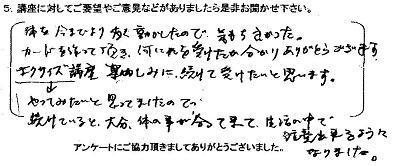 5. 講座に対してご要望やご意見などがありましたら是非お聞かせ下さい。
体を今までより多く動かしたので、気もち良かった。
カードを作って頂き、何にれを受けたか分かりありがとうございます
エクササイズ講座 楽しみに、続けて受けたいと思います。
やってみたいと思ってましたので
続けていると、大分、体の事が分って来て、生活の中で
注意出来るように
なりました。
アンケートにご協力頂きましてありがとうございました。